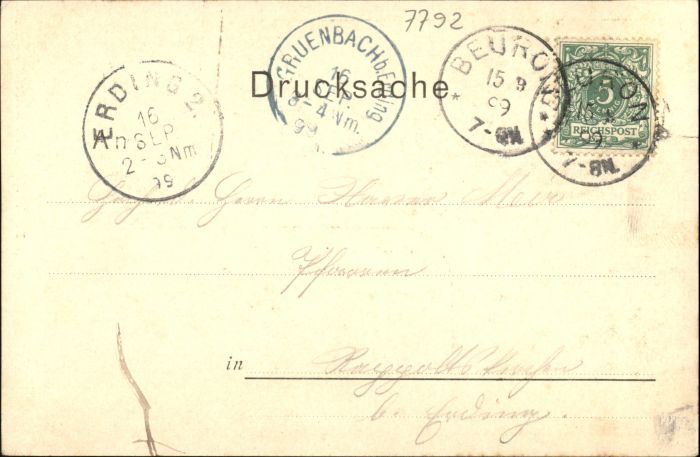 7792
GRUENBACH b. Erding
16
SEP
3-4 Nm.
99
BEURON
15 9
99
7-8N.
BEURON
15 9
99
7-8N.
5
REICHSPOST
ERDING 2.
16
SEP
2-3 Nm
99
Drucksache
An
Herrn
Pfarrer
in
b. Erding.